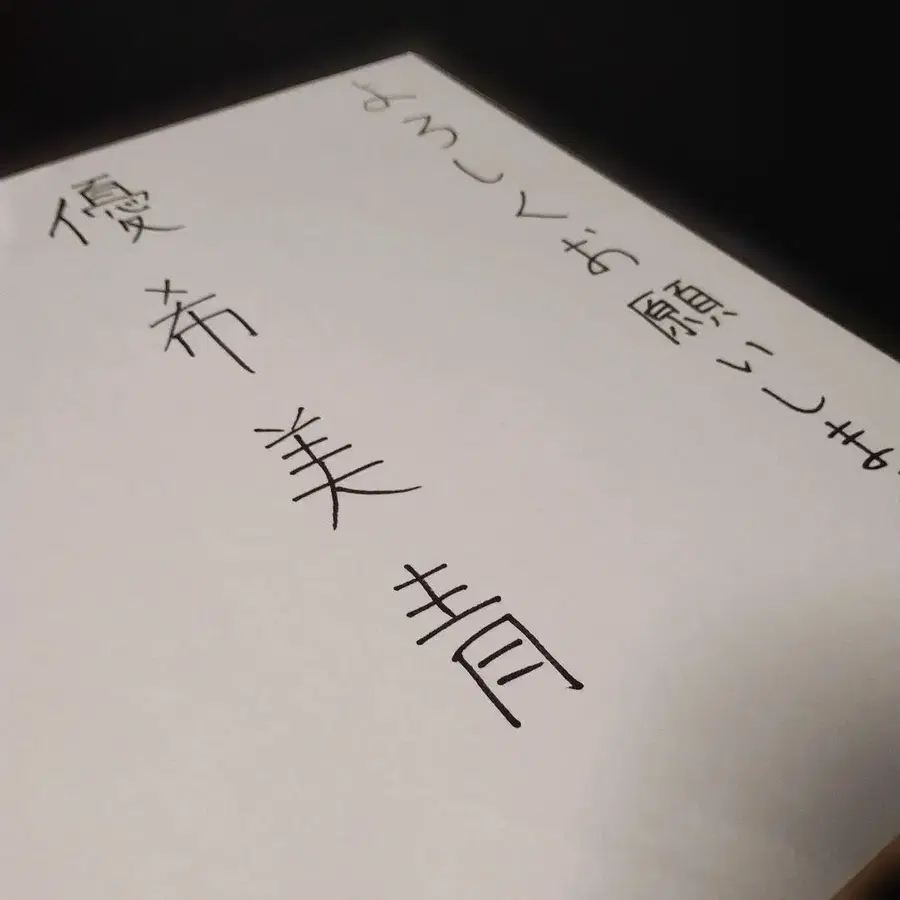 よろしくお願いしま
優希美青